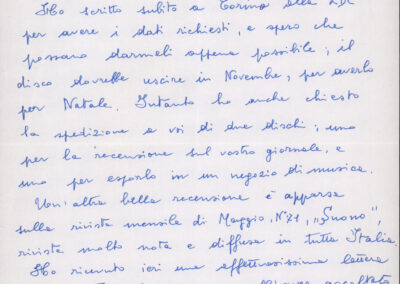 Ho scritto subito a Torino alla LDC
per avere i dati richiesti, e spero che
possano darmeli appena possibile; il
disco dovrebbe uscire in Novembre, per averlo
per Natale. Intanto ho anche chiesto
la spedizione a voi di due dischi; uno
per la recensione sul vostro giornale, e
uno per esporlo in un negozio di musica.
Un'altra bella recensione è apparsa
sulla rivista mensile di Maggio, N°71, "Suono",
rivista molto nota e diffusa in tutta Italia.
Ho ricevuto ieri una affettuosissima lettera
ascoltato